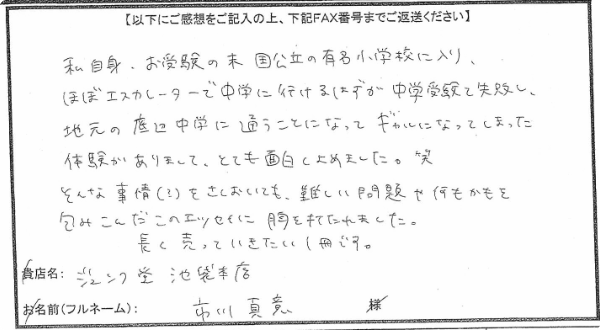 【以下にご感想をご記入の上、下記FAX番号までご返送ください】
私自身、お受験の末 国公立の有名小学校に入り、
ほぼエスカレーターで中学に行けるはずが中学受験で失敗し、
地元の底辺中学に通うことになってギャルになってしまった
体験がありまして、とても面白く読めました。笑
そんな事情(?)をさしおいても、難しい問題や何もかもを
包みこんだこのエッセイに胸を打たれました。
長く売っていきたい1冊です。
貴店名: ジュンク堂 池袋本店
お名前(フルネーム): 市川真意 様